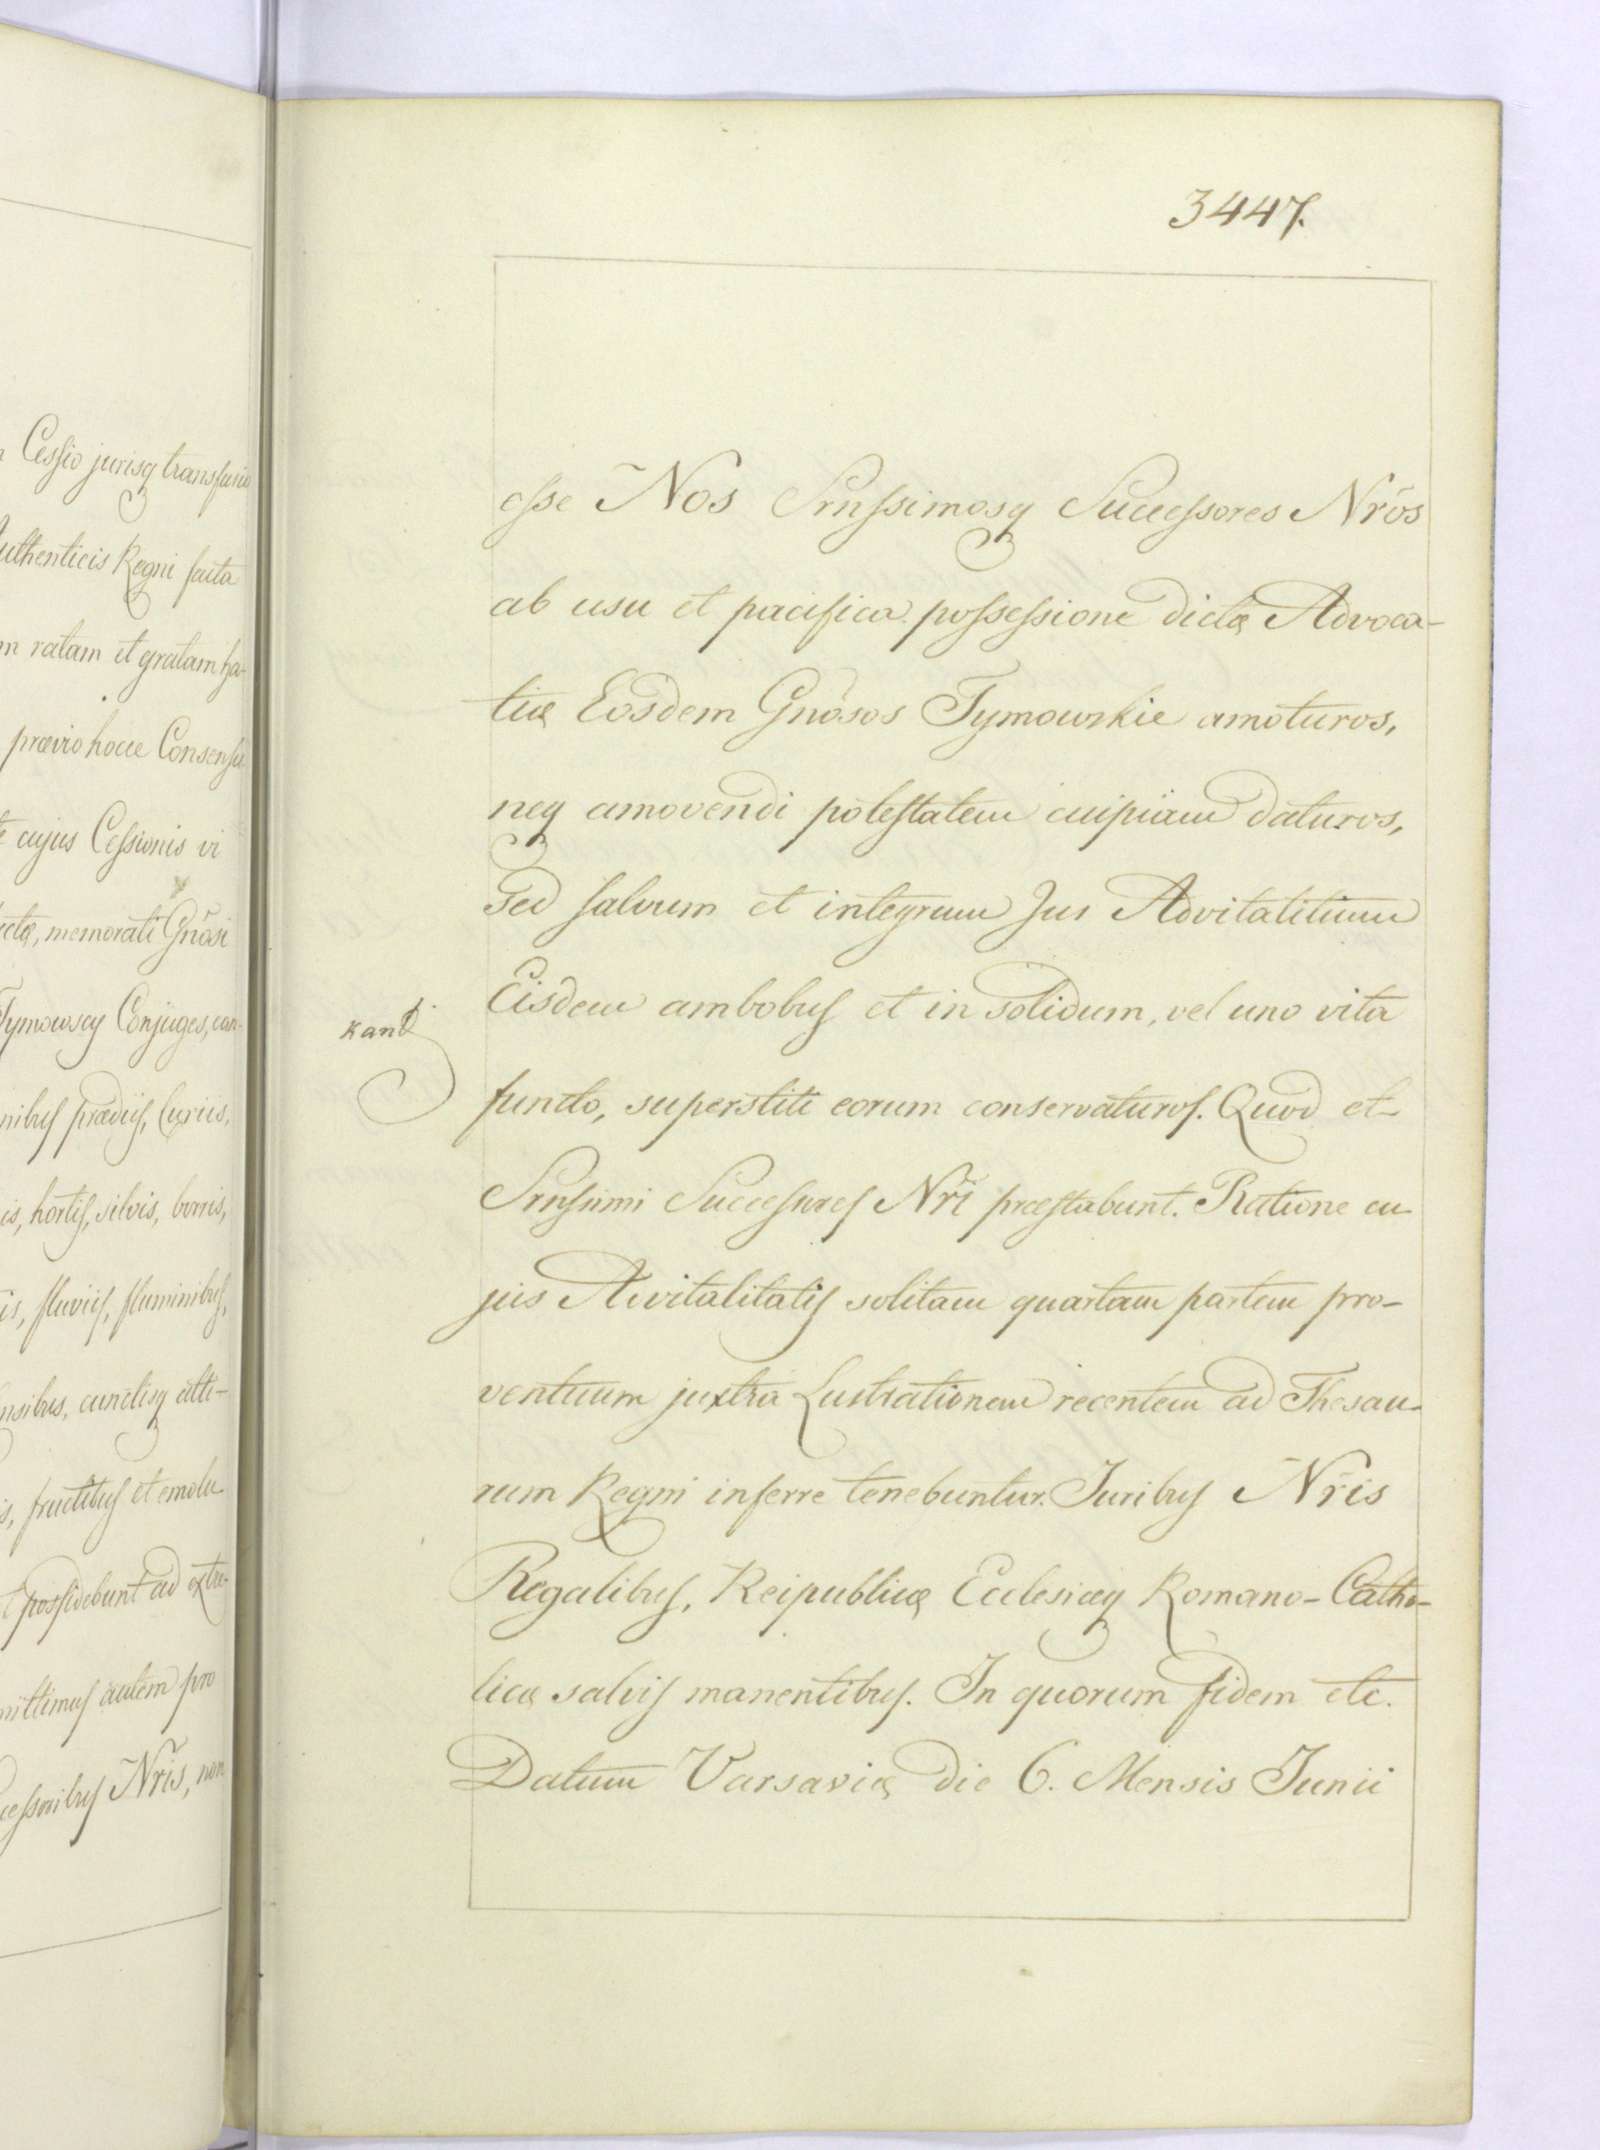 Cessio jurisq transfusio
Authenticis Regni facta
ratam et gratam ha-
prævio hocce Consensu
cujus Cessionis vi
memorati Gnõsi
Tymowscy Conjuges, cum
prædiis, Curiis,
hortis, silvis, borris,
fluviis, fluminibus,
cunctisq atti-
fructibus et emolu-
possidebunt ad extre-
autem pro
Nris, non
3447.
esse Nos Srnssimosq Successores Nrõs
ab usu et pacifica possessione dictæ Advoca-
tiæ Eosdem Gnõsos Tymowskie amoturos,
neq amovendi potestatem cuipiam daturos,
Sed salvum et integrum Jus Advitalitium
Eisdem ambobus et in solidum, vel uno vita
Kant
functo, superstiti eorum conservaturos. Quod et
Srnssimi Successores Nrĩ præstabunt. Ratione cu-
jus Avitalitatis solitam quartam partem pro-
ventuum juxtra Lustrationem recentem ad Thesau-
rum Regni inferre tenebuntur. Juribus Nrĩs
Regalibus, Reipublicæ Ecclesiæq Romano-Catho-
licæ salvis manentibus. In quorum fidem etc.
Datum Varsaviæ die 6. Mensis Junii